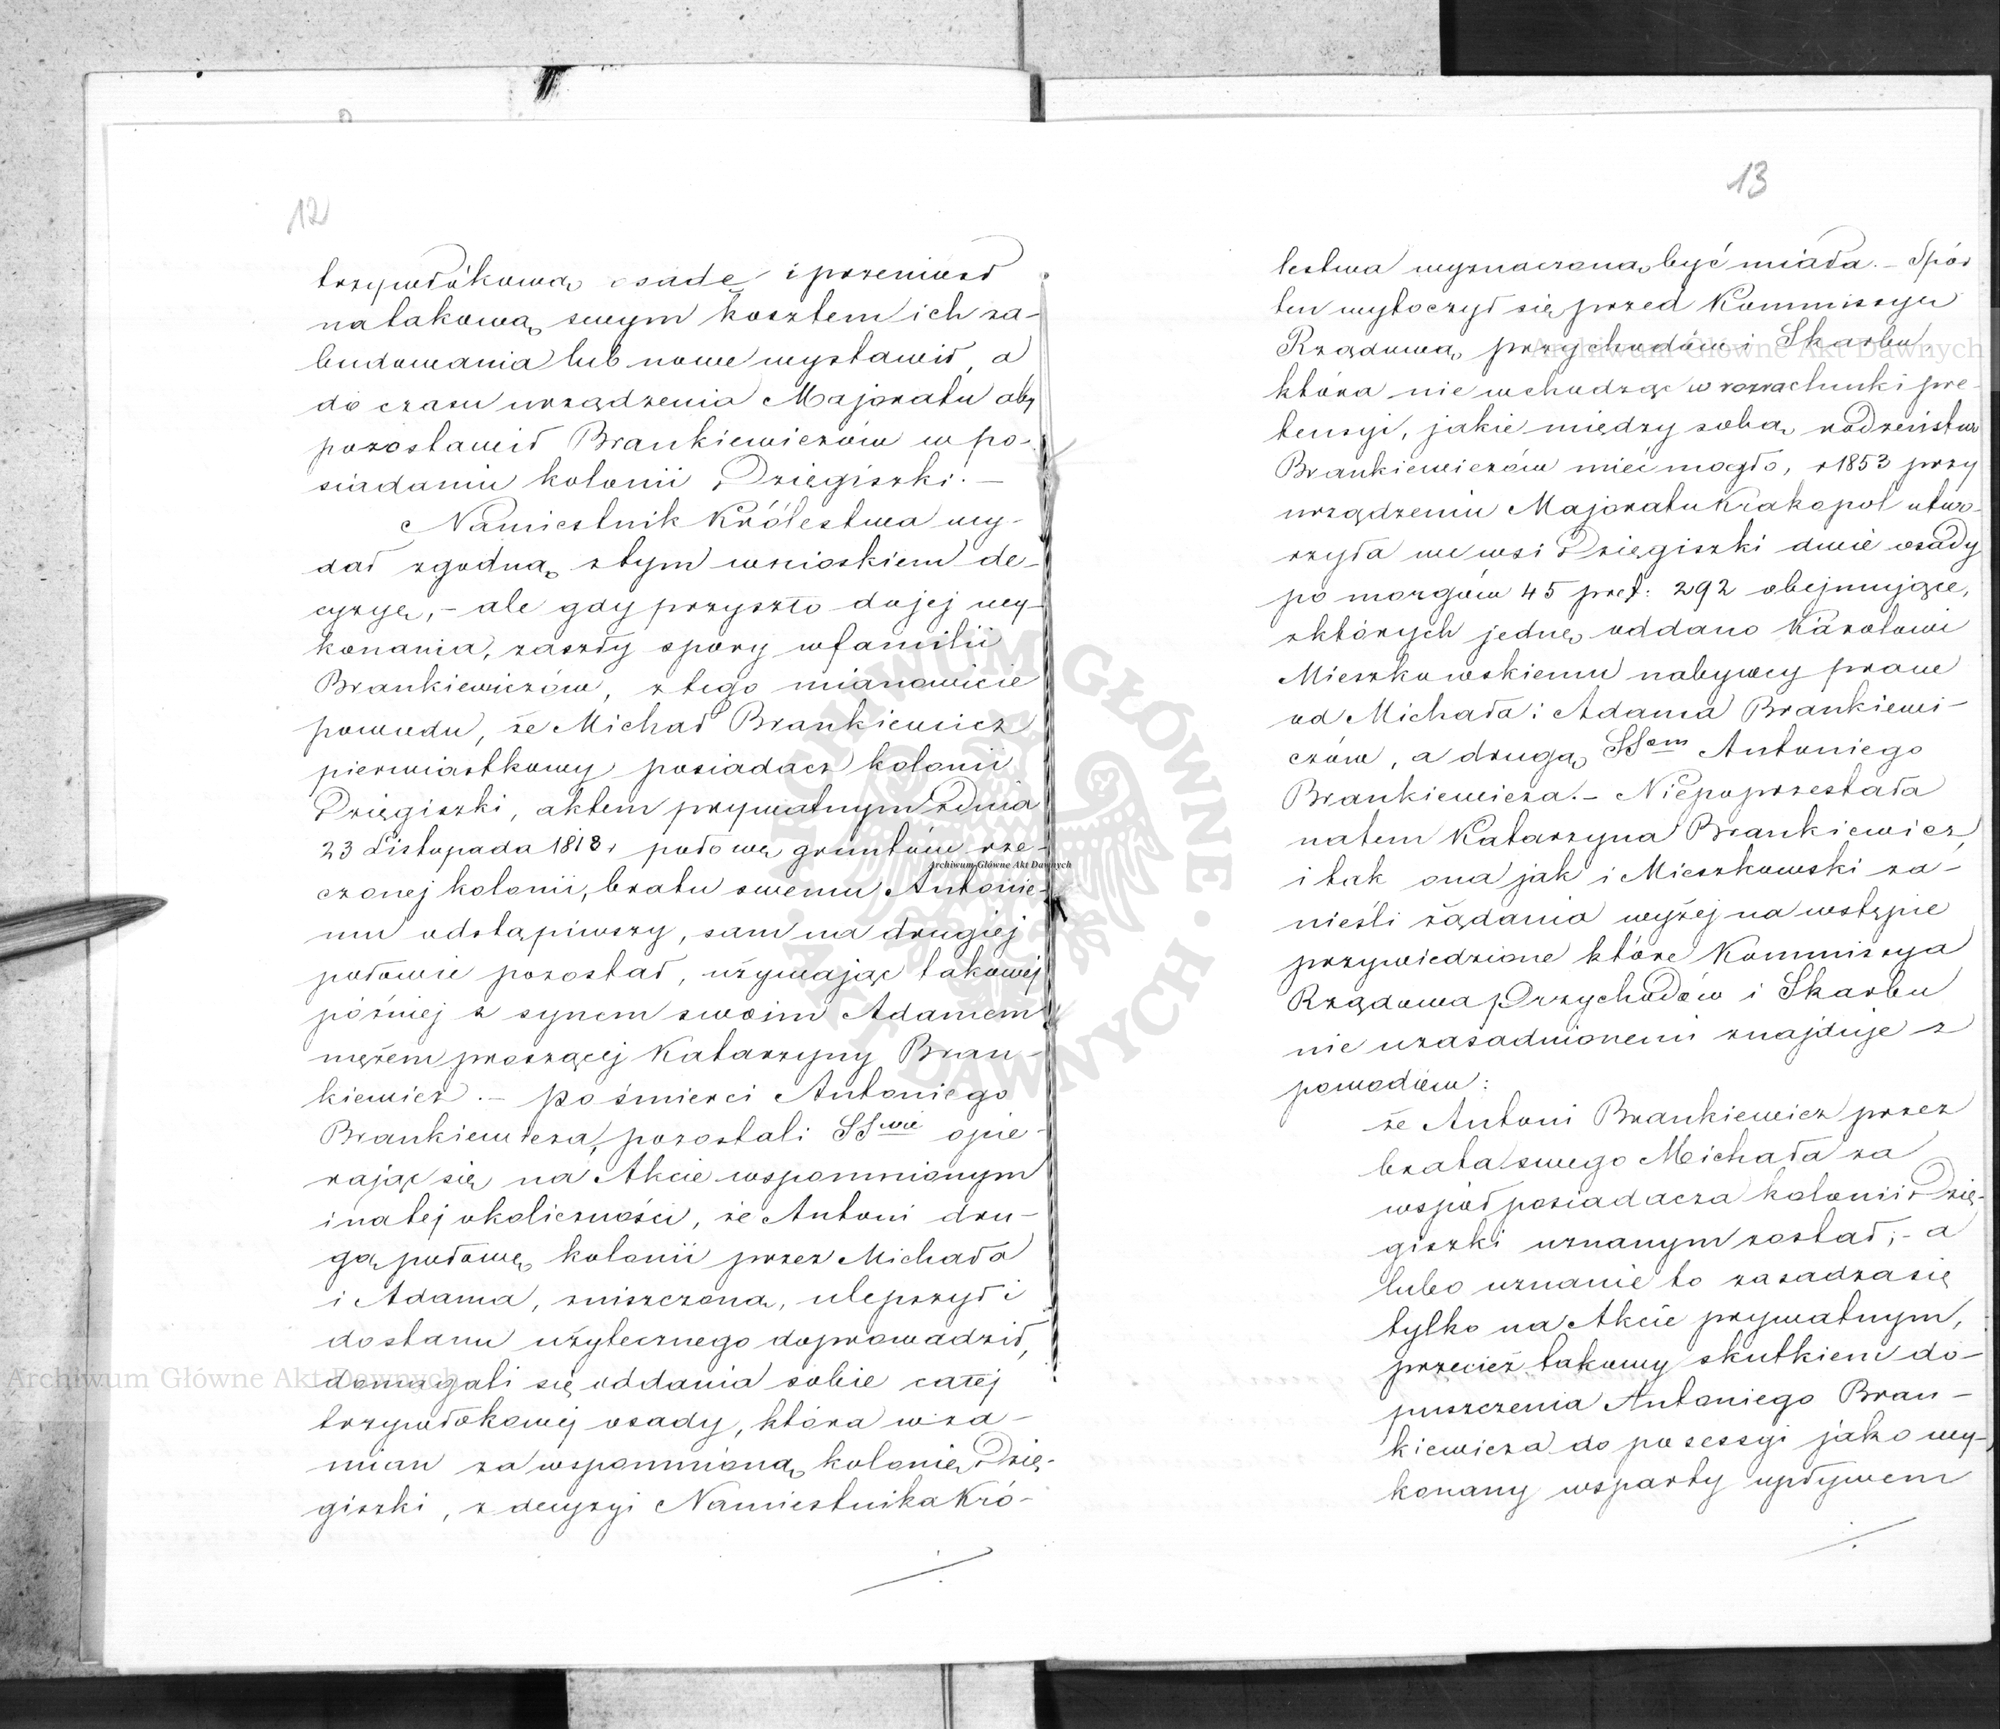 12
trzywłókową osadę i przeniósł
na takową, swym kosztem ich za-
budowania lub nowe wystawił, a
do czasu urządzenia Majoratu aby
pozostawił Brankiewiczów w po-
siadaniu kolonii Dzięgiszki. —
Namiestnik Królestwa wy-
dał zgodną z tym wnioskiem de-
cyzyę, – ale gdy przyszło do jej wy-
konania, zaszły spory w familii
Brankiewiczów, z tego mianowicie
powodu, że Michał Brankiewicz
pierwiastkowy posiadacz kolonii
Dzięgiszki, aktem prywatnym z dnia
23 Listopada 1818 r połowę gruntów rze-
czonej kolonii, bratu swemu Antonie-
mu odstąpiwszy, sam na drugiej
połowie pozostał, używając takowej
później z synem swoim Adamem
mężem proszącej Katarzyny Bran-
kiewicz. — po śmierci Antoniego
Brankiewicza, pozostali SSwie opie-
rając się na Akcie wspomnionym
i na tej okoliczności, że Antoni dru-
gą połowę kolonii przez Michała
i Adama, zniszczoną, ulepszył i
do stanu użytecznego doprowadził,
domagali się oddania sobie całej
trzywłókowej osady, która w za-
mian za wspomnioną kolonię Dzię-
giszki, z decyzyi Namiestnika Kró-
13
lestwa wyznaczoną być miała. – Spór
ten wytoczył się przed Kommissyę
Rządową przychodów i Skarbu,
która nie wchodząc w rozrachunki pre-
tensyi, jakie między sobą rodzeństwo
Brankiewiczów mieć mogło, r 1853 przy
urządzeniu Majoratu Krakopol utwo-
rzyła we wsi Dzięgiszki dwie osady
po morgów 45 pręt: 292 obejmujące,
z których jednę oddano Karolowi
Mieszkowskiemu nabywcy praw
od Michała i Adama Brankiewi-
czów, a drugą SSom Antoniego
Brankiewicza. – Nie poprzestała
na tem Katarzyna Brankiewicz,
i tak ona jak i Mieszkowski za-
nieśli żądania wyżej na wstępie
przywiedzione które Kommissya
Rządowa Przychodów i Skarbu
nie uzasadnionemi znajduje z
powodów:
że Antoni Brankiewicz przez
brata swego Michała za
współposiadacza kolonii Dzię-
giszki uznanym został; – a
lubo uznanie to zasadza się
tylko na Akcie prywatnym,
przecież takowy skutkiem do-
puszczenia Antoniego Bran-
kiewicza do posessyi jako wy-
konany wsparty upływem
Archiwum Główne Akt Dawnych
Archiwum Główne Akt Dawnych
Archiwum Główne Akt Dawnych
ARCHIWUM GŁÓWNE AKT DAWNYCH